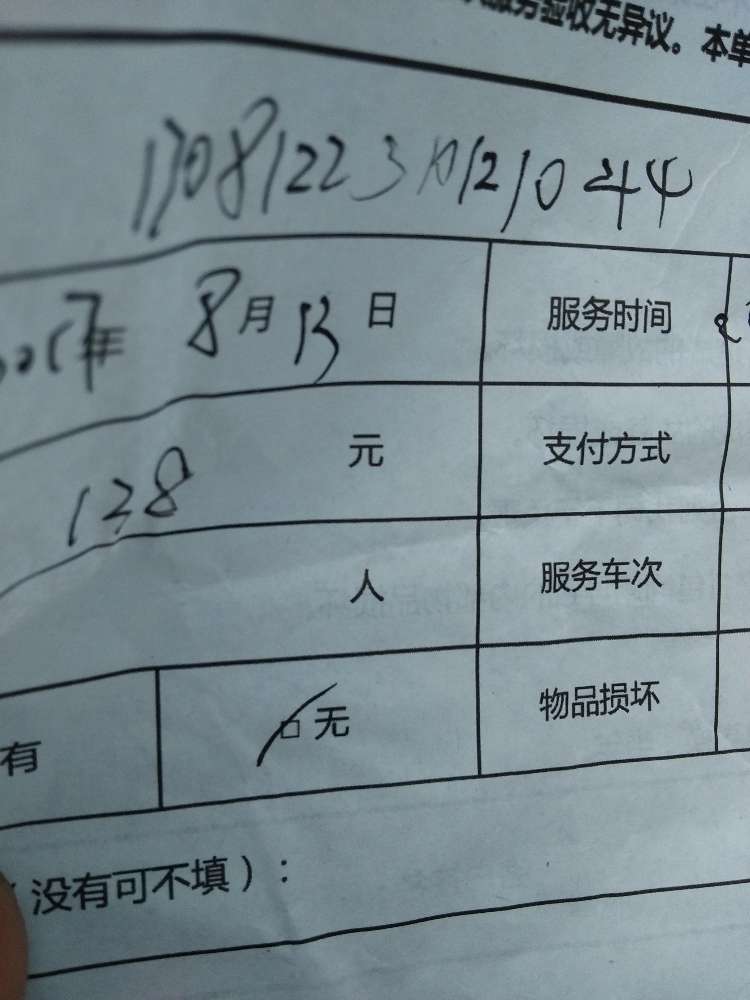 服务验收无异议。本单
170812231012 1044
年 8月13日 服务时间
128 元 支付方式
人 服务车次
有 □无 物品损坏
（没有可不填）：